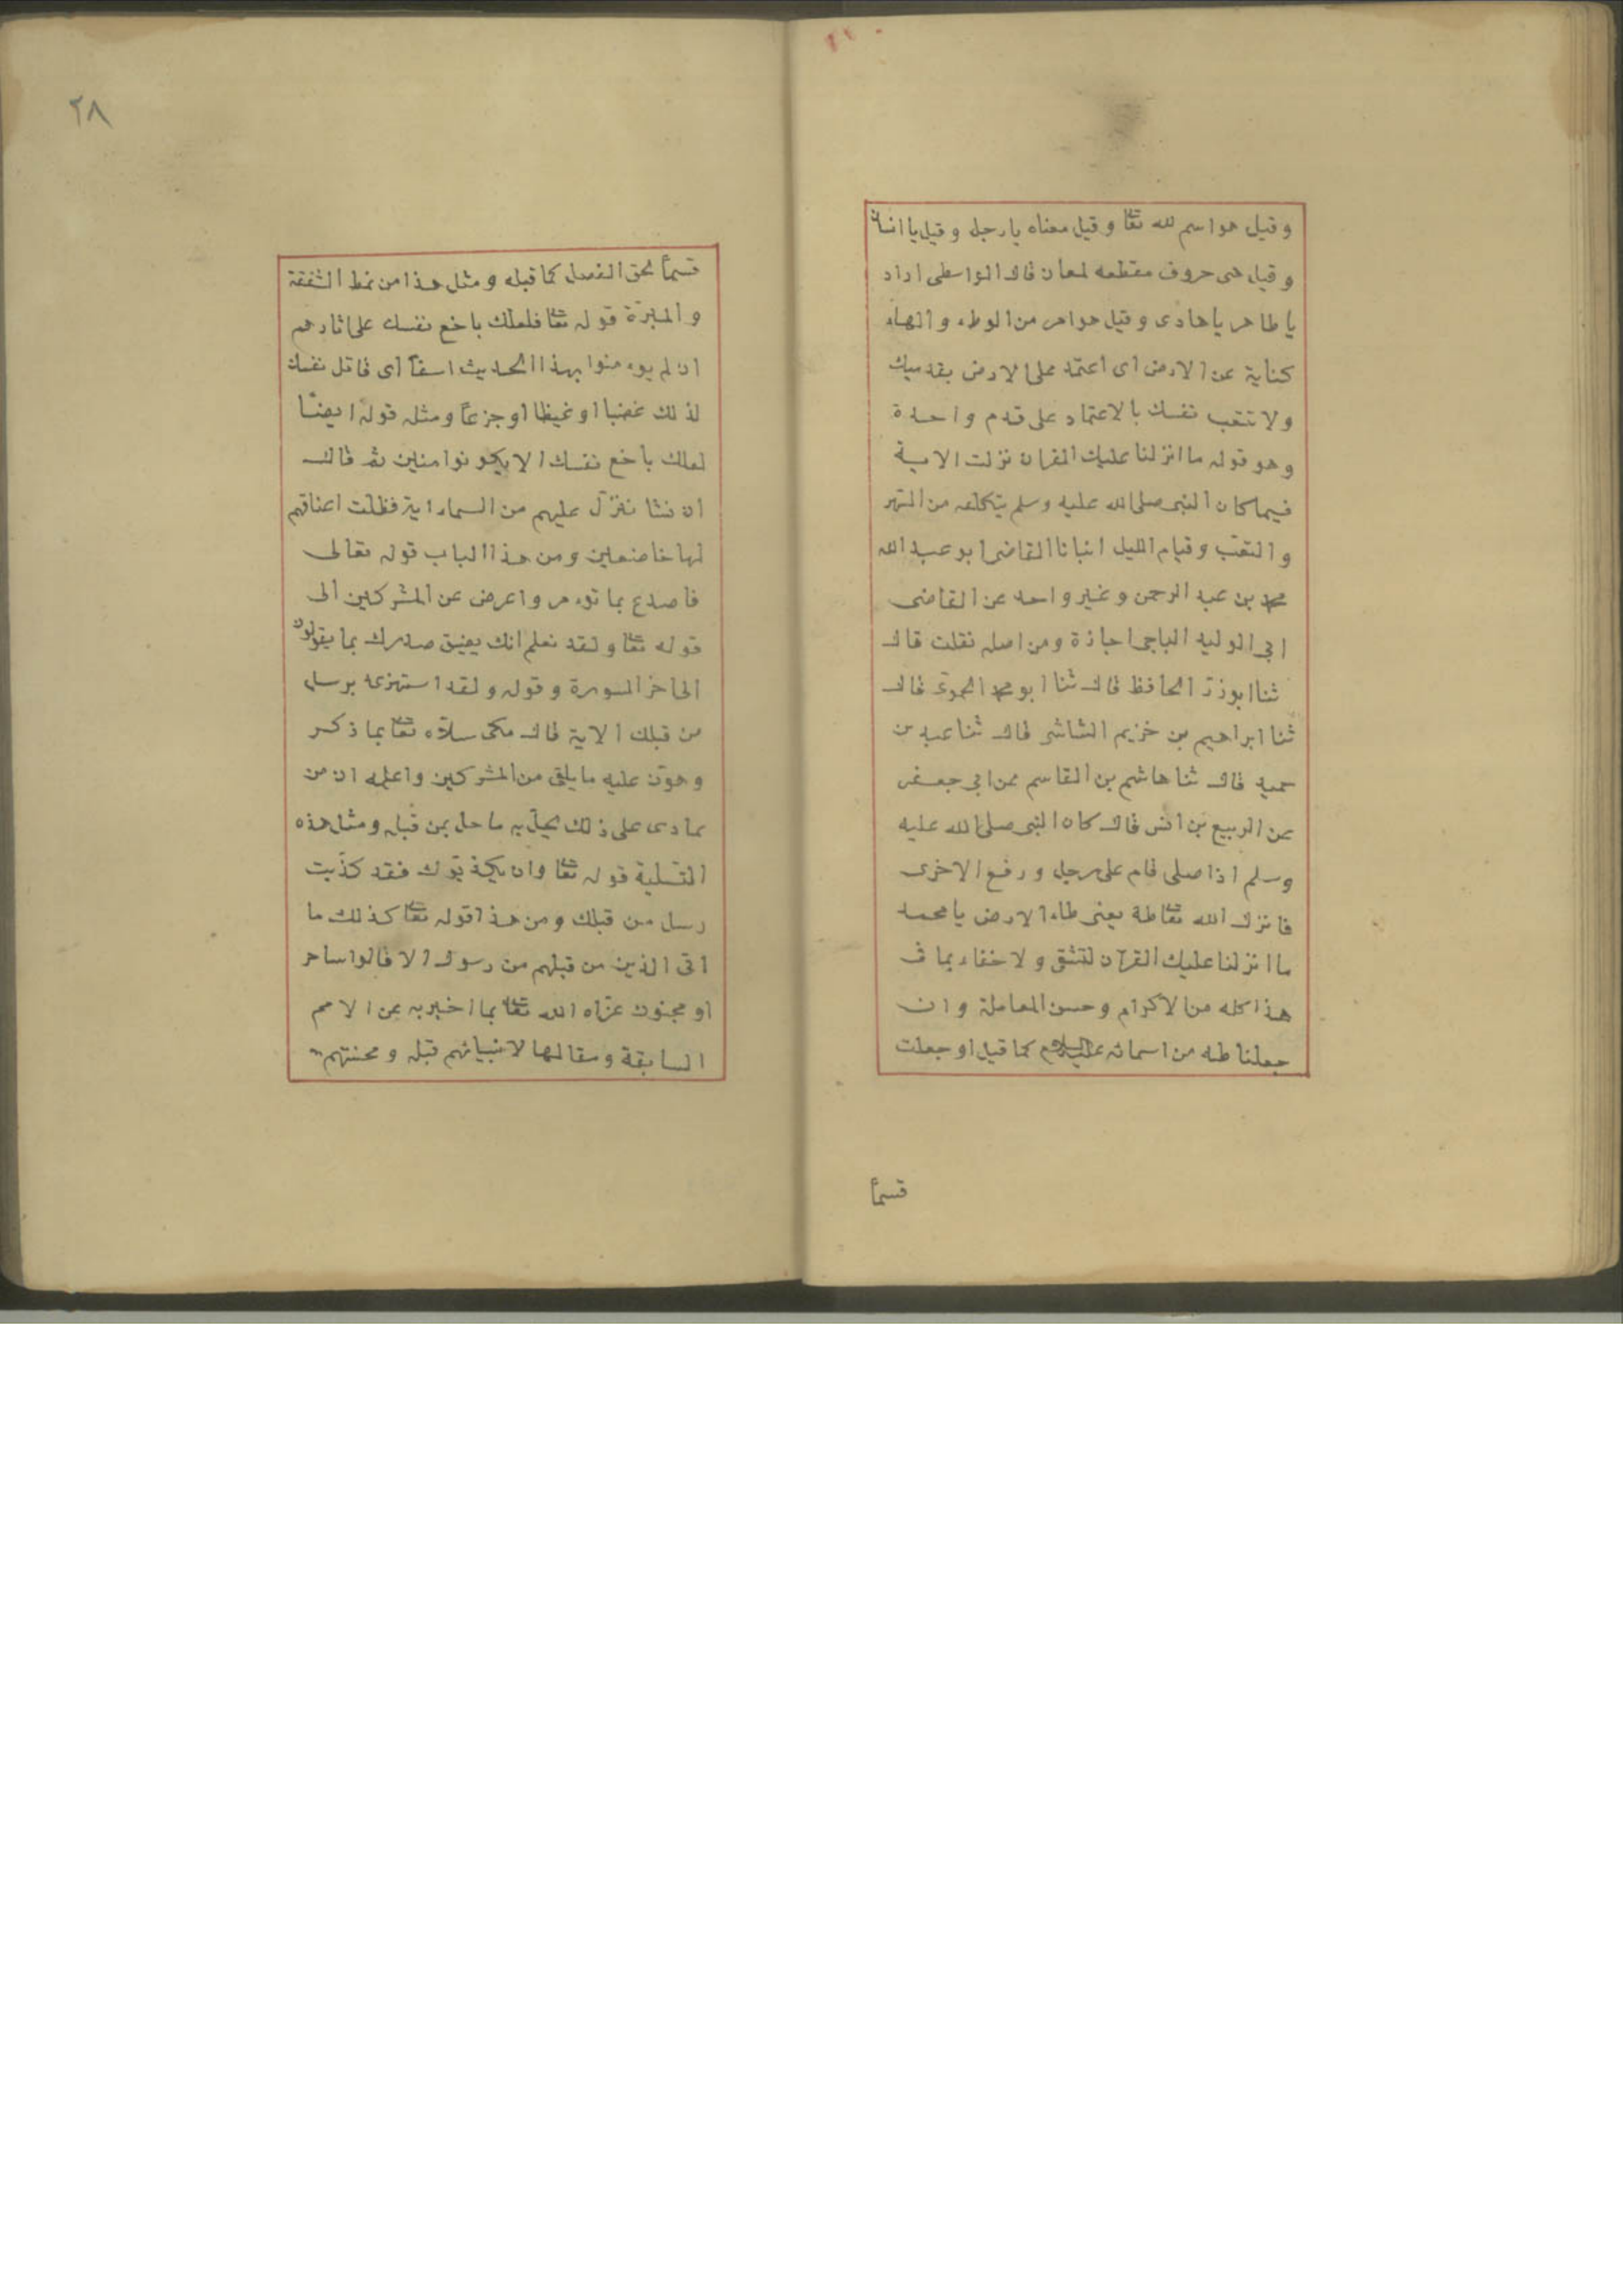 وقيل هو اسم لله تعا وقيل معناه يا رجل وقيل يا انسان
وقيل هى حروف مقطعه لمعان قال الواسطى اراد
يا طاهر يا هادى وقيل هو امر من الوطء والهاء
كناية عن الارض اى اعتمد على الارض بقدميك
ولا تتعب نفسك بالاعتماد على قدم واحدة
وهو قوله ما انزلنا عليك القران نزلت الاية
فيما كان النبى صلى الله عليه وسلم يتكلفه من السهر
والتعب وقيام الليل انبانا القاضى ابو عبد الله
محمد بن عبد الرحمن وغير واحد عن القاضى
ابى الوليد الباجى اجازة ومن اصله نقلت قال
ثنا ابوذر الحافظ قال ثنا ابو محمد الحموى قال
ثنا ابراهيم بن خزيم الشاشى قال ثنا عبد بن
حميد قال ثنا هاشم بن القاسم عن ابى جعفر
عن الربيع بن انس قال كان النبى صلى الله عليه
وسلم اذا صلى قام على رجل ورفع الاخرى
فانزل الله تعا طه يعنى طاء الارض يا محمد
ما انزلنا عليك القرآن لتشقى ولا خفاء بما فى
هذا كله من الاكرام وحسن المعاملة وان
جعلنا طه من اسمائه عليه السلام كما قيل او جعلت
قسماً
٢٨
قسماً لحق الفصل كما قبله ومثل هذا من نمط الشفقة
والمبرّة قوله تعا فلعلك باخع نفسك على اثارهم
ان لم يوءمنوا بهذا الحديث اسفاً اى قاتل نفسك
لذلك غضبا او غيظا او جزعاً ومثله قوله ايضًا
لعلك باخع نفسك الا يكونوا مؤمنين ثم قال
ان نشا ننزل عليهم من السماء اية فظلت اعناقهم
لها خاضعين ومن هذا الباب قوله تعالى
فاصدع بما توءمر واعرض عن المشركين الى
قوله تعا ولقد نعلم انك يضيق صدرك بما يقولون
الى اخر السورة وقوله ولقد استهزىء برسل
من قبلك الاية قال مكى سلاّه تعا بما ذكر
وهوّن عليه ما يلقى من المشركين واعلمه ان من
تمادى على ذلك يحلّ به ما حل بمن قبله ومثل هذه
التسلية قوله تعا وان يكذبوك فقد كذّبت
رسل من قبلك ومن هذا قوله تعا كذلك ما
اتى الذين من قبلهم من رسول الا قالوا ساحر
او مجنون عزّاه الله تعا بما اخبر به عن الامم
السابقة ومقالها لانبيائهم قبله ومحنتهم